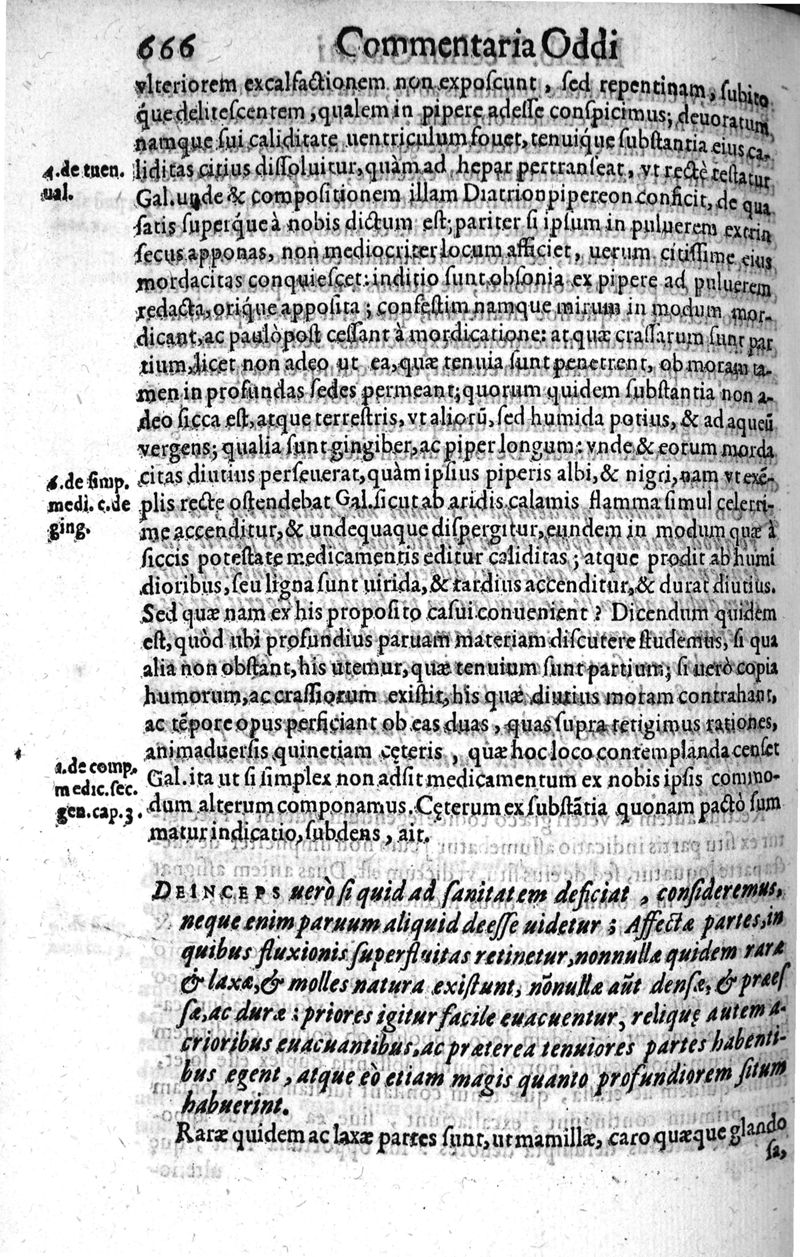 666 Commentaria Oddi
vlteriorem excalfactionem non exposcunt, sed repentinam, subito
q́ue delitescentem, qualem in pipere adesse conspicimus; deuoratum
namque sui caliditate uentriculum fouet, tenuique substantia eius ca-
4. de tuen. liditas citius dissoluitur, quàm ad hepar pertranseat, vt rectè testatur
ual. Gal. unde & compositionem illam Diatrionpipereon conficit, de qua
satis superq́ue à nobis dictum est; pariter si ipsum in puluerem extrin
secus apponas, non mediocriter locum afficiet, uerum citissime eius
mordacitas conquiescet: inditio sunt obsonia ex pipere ad puluerem
redacta, oriq́ue apposita; confestim namque mirum in modum mor-
dicant, ac paulòpost cessant à mordicatione: at quæ crassarum sunt par
tium, licet non adeo ut ea, quæ tenuia sunt penetrent, ob moram ta-
men in profundas sedes permeant; quorum quidem substantia non a-
deo sicca est, atque terrestris, vt aliorũ, sed humida potius, & ad aqueũ
vergens; qualia sunt gingiber, ac piper longum: vnde & eorum morda
6. de simp. citas diutius perseuerat, quàm ipsius piperis albi, & nigri, nam vt exẽ-
medi. c. de plis recte ostendebat Gal. sicut ab aridis calamis flamma simul celerri-
ging. me accenditur, & undequaque dispergitur, eundem in modum quæ à
siccis potestate medicamentis editur caliditas; atque prodit ab humi
dioribus, seu ligna sunt uirida, & tardius accenditur, & durat diutius.
Sed quæ nam ex his proposito casui conuenient? Dicendum quidem
est, quòd ubi profundius paruam materiam discutere studemus, si qua
alia non obstant, his utemur, quæ tenuium sunt partium; si uerò copia
humorum, ac crassiorum existit, his quæ diutius moram contrahant,
ac tẽpore opus perficiant ob eas duas, quas supra tetigimus rationes,
animaduersis quinetiam cęteris, quæ hoc loco contemplanda censet
1. de comp. Gal. ita ut si simplex non adsit medicamentum ex nobis ipsis commo-
medic. sec. dum alterum componamus. Cęterum ex substãtia quonam pactò sum
gen. cap. 3. matur indicatio, subdens, ait.
DEINCEPS uerò si quid ad sanitatem deficiat, consideremus,
neque enim paruum aliquid deesse uidetur; Affectæ partes, in
quibus fluxionis superfluitas retinetur, nonnullæ quidem raræ
& laxæ, & molles natura existunt, nõnullæ aũt densæ, & præs
sæ, ac duræ: priores igitur facile euacuentur, relique̜ autem a-
crioribus euacuantibus, ac præterea tenuiores partes habenti-
bus egent, atque eò etiam magis quanto profundiorem situm
habuerint.
Raræ quidem ac laxæ partes sunt, ut mamillæ, caro quæque glando
sa,